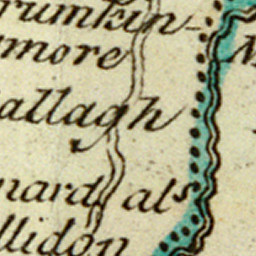 rumkin
more
allagh
nard als
llidon